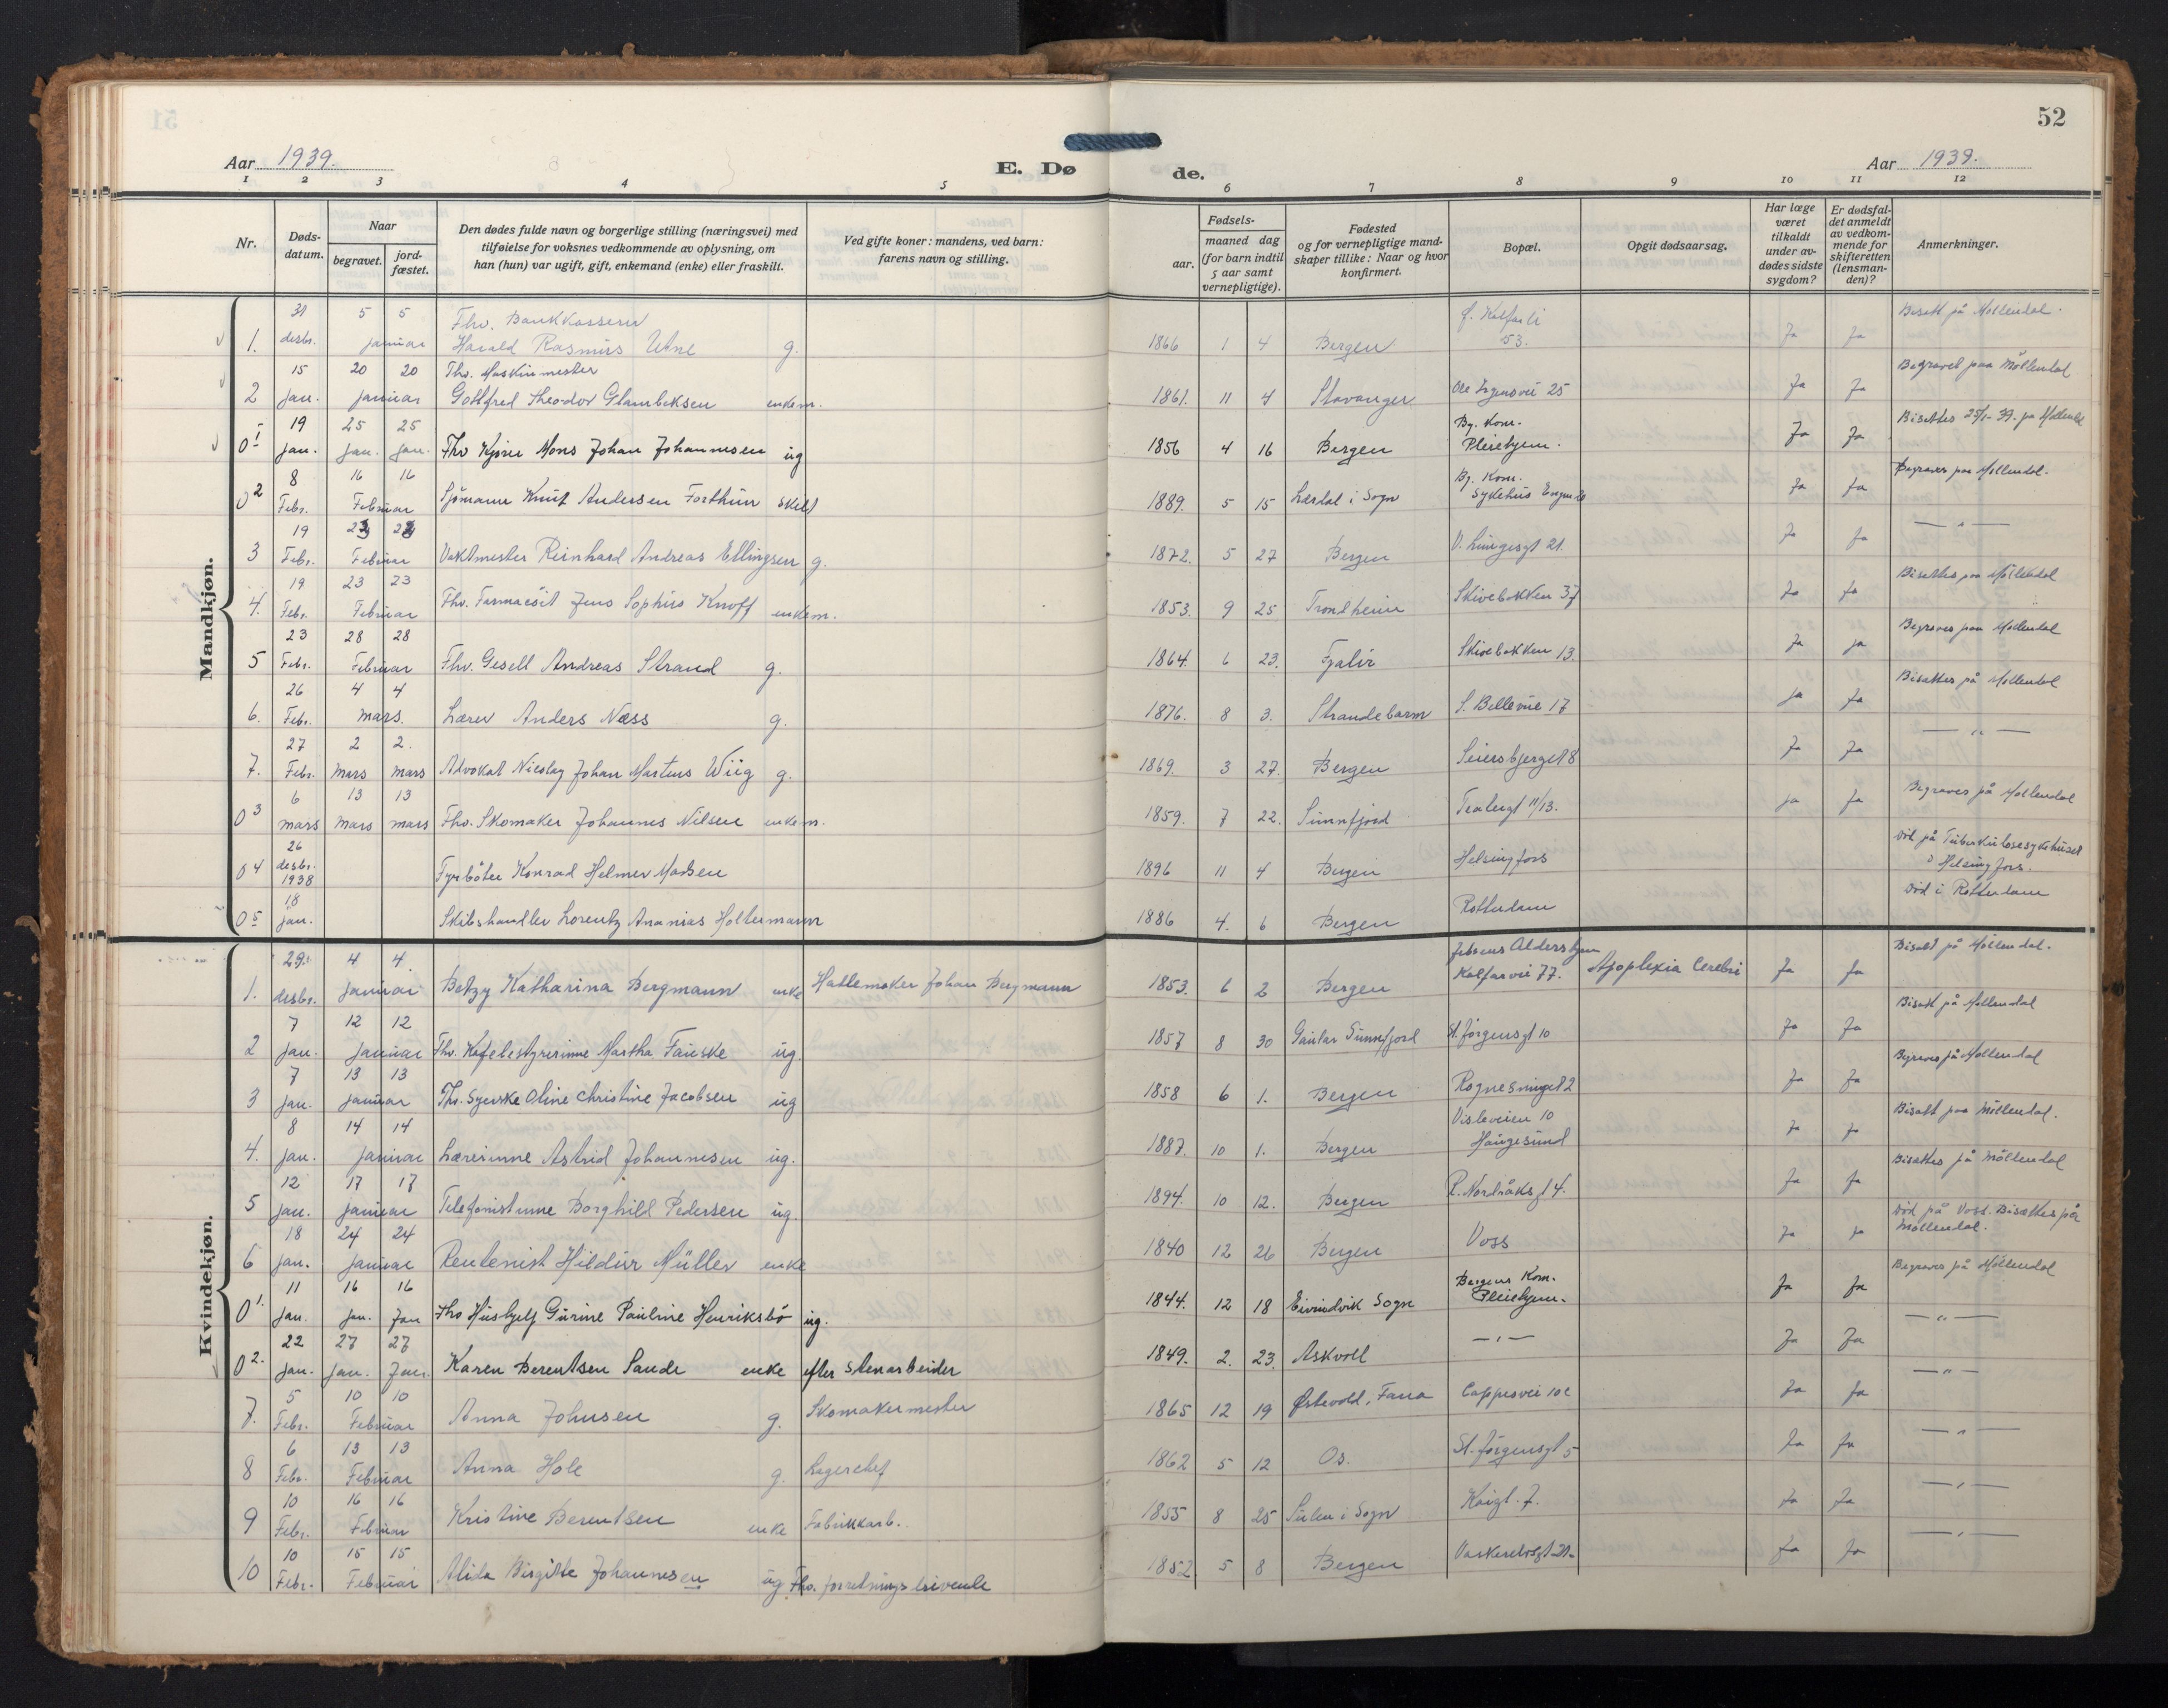 52
Aar 1939.
E. Dø
de.
Aar 1939.
1 2 3 4 5 6 7 8 9 10 11 12
Nr.
Døds-
datum.
Naar
begravet.
jord-
fæstet.
Den dødes fulde navn og borgerlige stilling (næringsvei) med
tilføielse for voksnes vedkommende av oplysning, om
han (hun) var ugift, gift, enkemand (enke) eller fraskilt.
Ved gifte koner: mandens, ved barn:
farens navn og stilling.
Fødsels-
aar.
maaned dag
(for barn indtil
5 aar samt
vernepligtige).
Fødested
og for vernepligtige mand-
skaper tillike: Naar og hvor
konfirmert.
Bopæl.
Opgit dødsaarsag.
Har læge
været
tilkaldt
under av-
dødes sidste
sygdom?
Er dødsfal-
det anmeldt
av vedkom-
mende for
skifteretten
(lensman-
den)?
Anmerkninger.
Mandkjøn.
31 5 5 Fhv. Bankkasserer f. Kalfarli Bisatt på Møllendal.
1. desbr. januar Harald Rasmus Utne g. 1866 1 4 Bergen 53. Ja Ja
15 20 20 Fhv. Maskinmester Begravet paa Møllendal
2 jan. januar Gottfred Theodor Glambeksen enkem. 1861. 11 4 Stavanger Ole Irgensvei 25 Ja Ja
19 25 25 By. Kom. Bisettes 25/1-39. pa Møllendal
01 jan. jan. jan. Fhv Kjører Mons Johan Johannesen ug 1856 4 16 Bergen Pleiehjem. Ja Ja
8 16 16 By. Kom. Begraves paa Møllendal.
02 Febr. Februar Sjømann Knut Andersen Forthun skilt 1889. 5 15 Lærdal i Sogn Sykehus Ja Ja
19 23 23
3 Febr. Februar Vaktmester Reinhard Andreas Ellingsen g. 1872. 5 27 Bergen V. Lungegt 21. Ja Ja — " —
19 23 23 Bisettes paa Møllendal
4. Febr. Februar Fhv. Farmacøit Jens Sophus Knoff enkem. 1853. 9 25 Trondheim Skivebakken 37 Ja Ja
23 28 28 Begraves paa Møllendal
5 Febr. Februar Fhv. Gesell Andreas Strand g. 1864. 6 23. Fjalir Skivebakken 13. Ja ja
26 4 4 Bisettes på Møllendal
6. Febr. mars. Lærer Anders Næss g. 1876. 8 3. Strandebarm S. Bellevue 17 ja Ja
27 2 2. — " —
7. Febr. Mars mars Advokat Nicolay Johan Martens Wiig g. 1869. 3 27. Bergen Seiersbjerget 8 Ja Ja
6 13 13 Begraves på Møllendal
03 mars Mars mars Fhv. Skomaker Johannes Nilsen enkem. 1859. 7 22. Sunnfjord Teatergt 11/13. ja Ja
26
desbr.
04 1938 Fyrbøter Konrad Helmer Madsen 1896 11 4 Bergen Helsingfors Død på Tuberkulosesykehuset
i Helsingfors.
18
05 jan. Skibshandler Lorentz Ananias Holtermann 1886 4. 6 Bergen Rotterdam Død i Rotterdam
Kvindekjøn.
29. 4 4. Jebsens Aldershjem Bisatt på Møllendal.
1. desbr. januar Betzy Katharina Bergmann enke Hattemaker Johan Bergmann 1853. 6 2 Bergen Kalfarvei 77. Apoplexia Cerebri Ja Ja
7 12 12 Bisatt på Møllendal
2 jan. januar Fhv. Kafebestyrerinne Martha Fauske ug. 1857 8 30 Gaular Sunnfjord St. Jørgensgt 10 Ja Ja
7 13 13 Begraves på Møllendal
3 jan. januar Fhv. Syerske Oline Christine Jacobsen ug 1858 6 1. Bergen Rognesmuget 2 Ja Ja
8 14 14 10 Bisatt paa Møllendal.
4. jan. januar Lærerinne Astrid Johannesen ug. 1887. 10 1. Bergen Haugesund Ja Ja
12 17 17 Bisattes på Møllendal
5 jan. januar Telefonistinne Borghild Pedersen ug. 1894. 10 12. Bergen R. Nordråksgt 4. Ja Ja
18 24 24 Død på Voss. Bisættes på
Møllendal.
6 jan. januar Rentenist Hildur Müller enke 1840 12 26 Bergen Voss Ja ja
11 16 16 Bergens Kom. Begraves på Møllendal
01. jan. jan. Jan Fhv Hushjelp Gurine Pauline Henriksbø ug. 1844. 12 18 Eivindvik Sogn Pleiehjem. Ja Ja
22 27 27
02. jan. jan. Jan. Karen Berentsen Sande enke efter Stenarbeider 1849. 2. 23. Askvoll — " — Ja Ja — " —
5 10 10
7. Febr. Februar Anna Johnsen g. Skomakermester 1865 12 19 Østevold, Fana Cappesvei 10c Ja Ja — " —
6 13 13
8 Febr. Februar Anna Hole g. Lagerchef 1862 5 12 Os. St. Jørgensgt 5 Ja Ja — " —
10 16 16
9 Febr. Februar Kristine Berentsen enke Fabrikkarb. 1855 8 25 Sulen i Sogn Kaigt. 7. Ja Ja — " —
10 15 15
10 Febr. Februar Alida Birgitte Johannesen ug. Fhv. forretningsdrivende 1852 5 8 Bergen Vaskerelvsgt 21. Ja Ja — " —